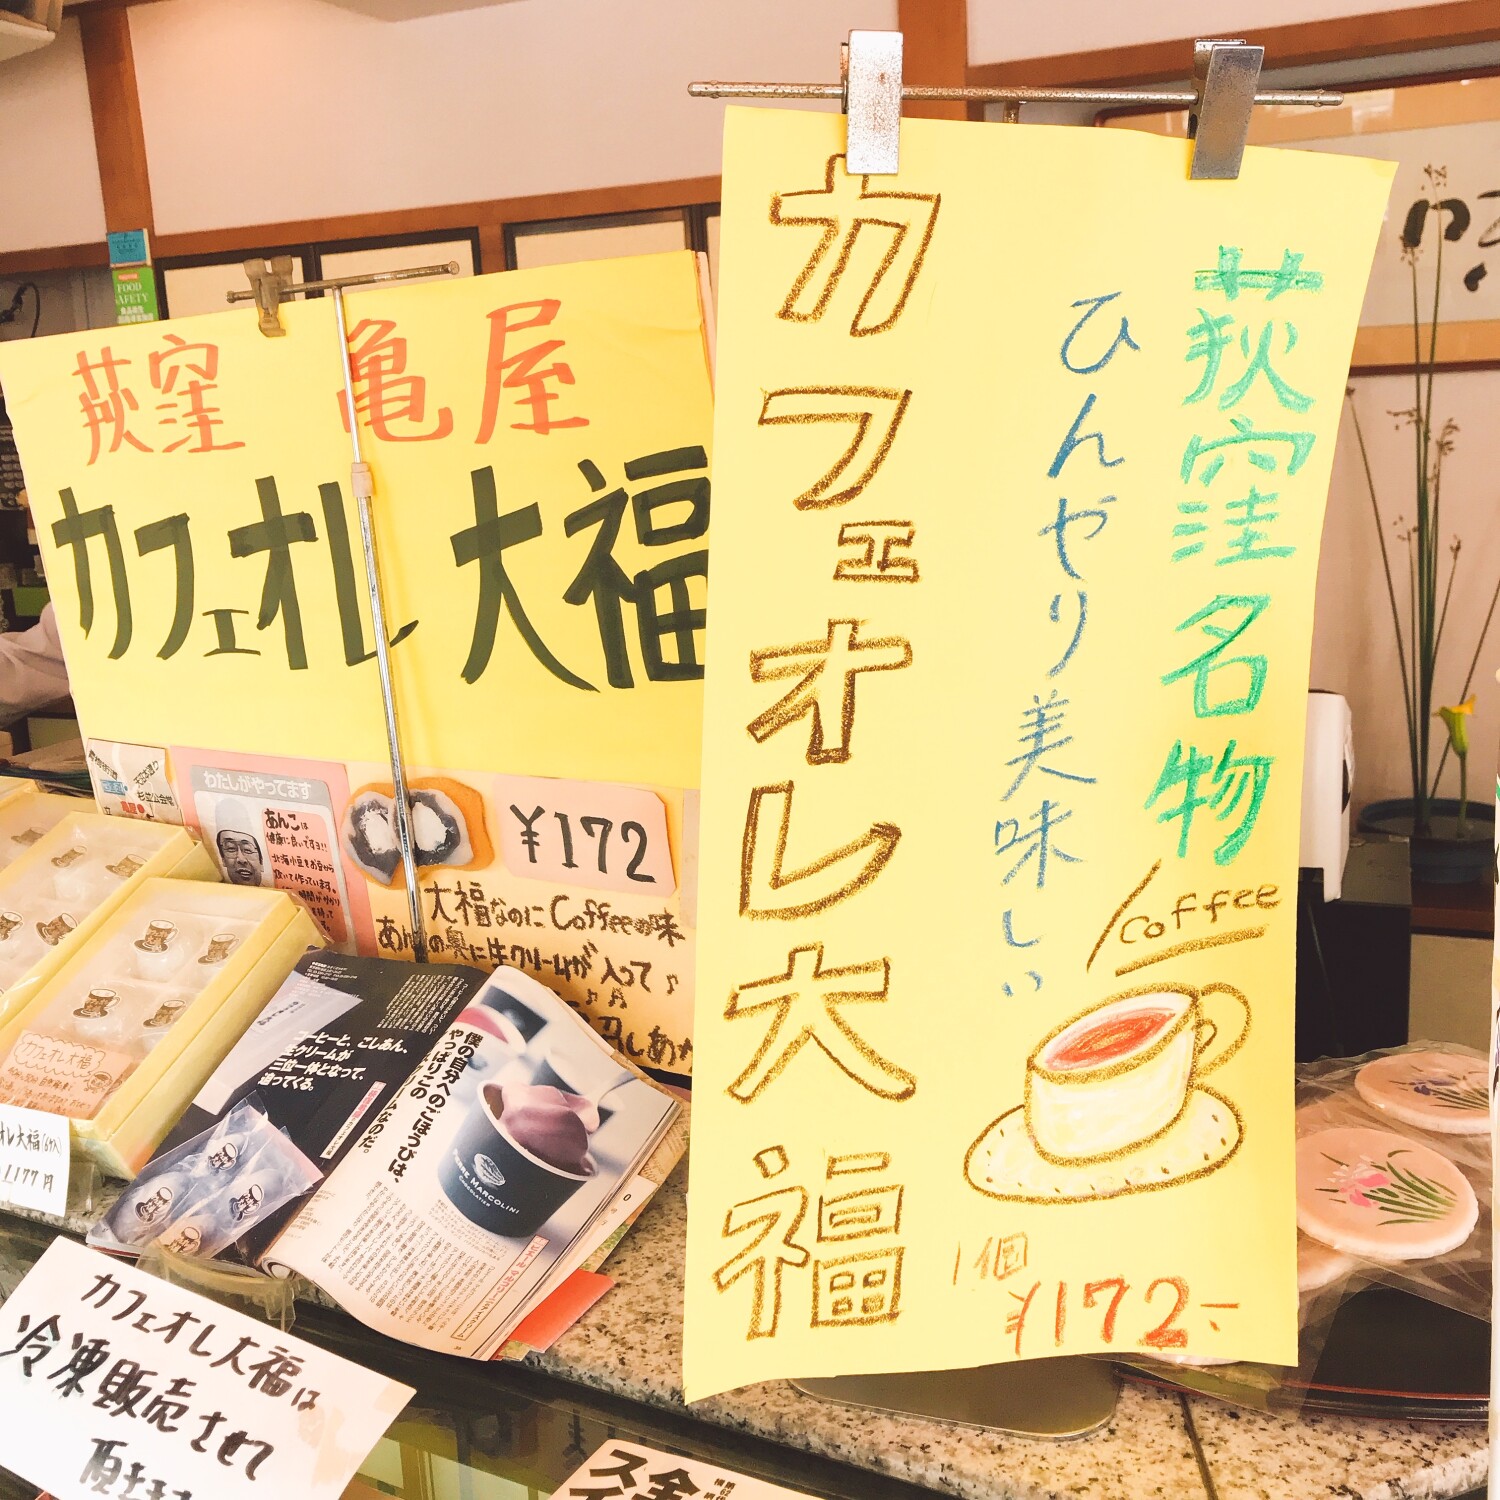 荻窪 亀屋
カフェオレ大福
¥172
大福なのにCoffeeの味
の奥に生クリームが入って♪
わたしがやってます
あんこは
健康に良いですヨ!!
北海小豆を
FOOD
SAFETY
荻窪名物
ひんやり美味しい
カフェオレ大福
coffee
1個
¥172-
コーヒーと、こしあん、
生クリームが
三位一体となって、
迫ってくる。
僕の自分へのごほうびは、
やっぱりこの
PIERRE MARCOLINI
CHOCOLATIER
カフェオレ大福
オレ大福(6ヶ入)
1,177円
カフェオレ大福は
冷凍販売させて